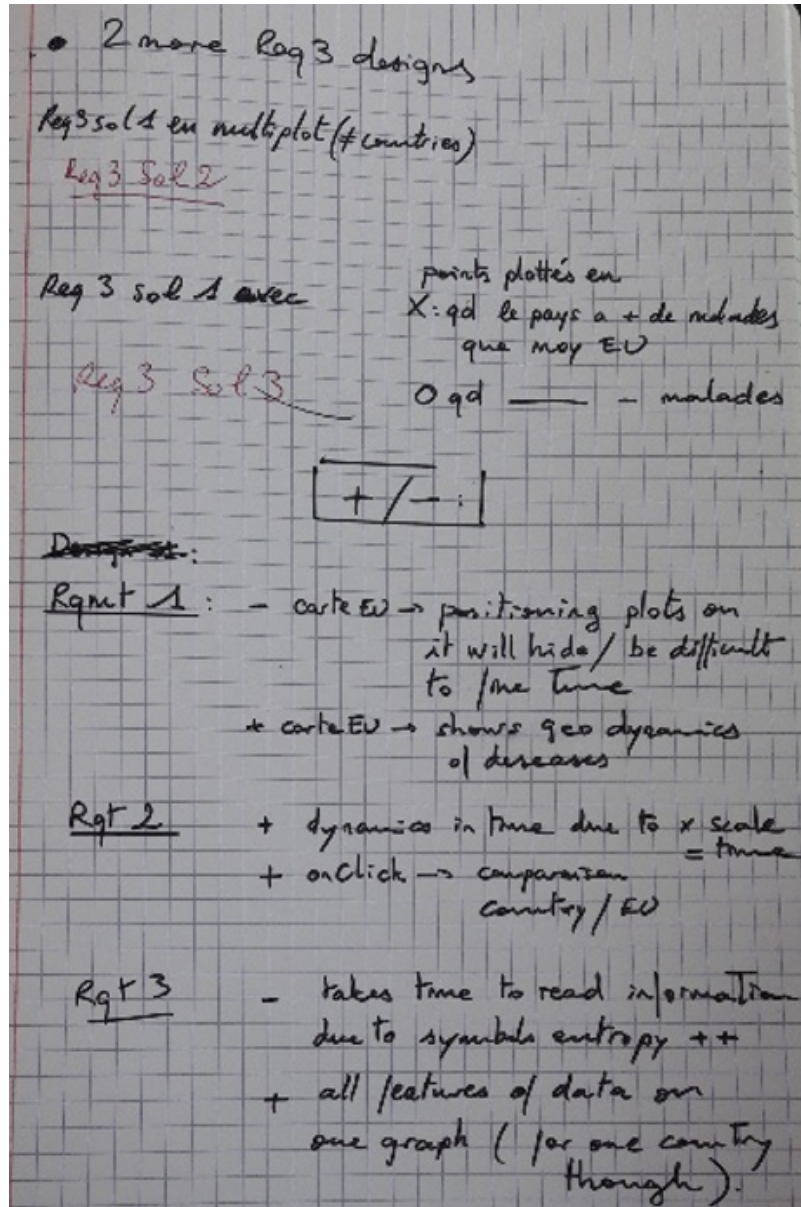 • 2 more Req 3 designs
Req 3 sol 1 en multiplot (≠ countries)
Req 3 Sol 2
Req 3 sol 1 avec
points plottés en
X : qd le pays a + de malades
que moy EU
Req 3 Sol 3
O qd —— - malades
+ / - :
Rqmt 1 : - carte EU → positioning plots on
it will hide / be difficult
to time
+ carte EU → shows geo dynamics
of diseases
Rqt 2 + dynamics in time due to x scale
= time
+ onClick → comparaison
country / EU
Rqt 3 - takes time to read information
due to symbols entropy ++
+ all features of data on
one graph ( for one country
though ).